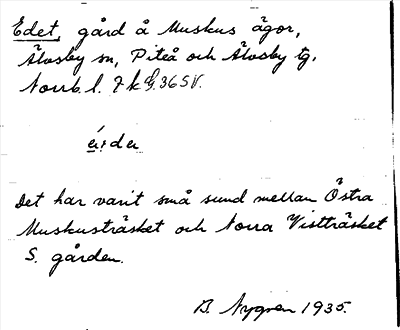 Edet, gård å Muskus ägor,
Älvsby sn, Piteå och Älvsby tg,
Norrb. l. 7 kg 36 SV.
é:da
Det har varit små sund mellan Östra
Muskusträsket och Norra Vistträsket
S. gården.
B. Nygren 1935.